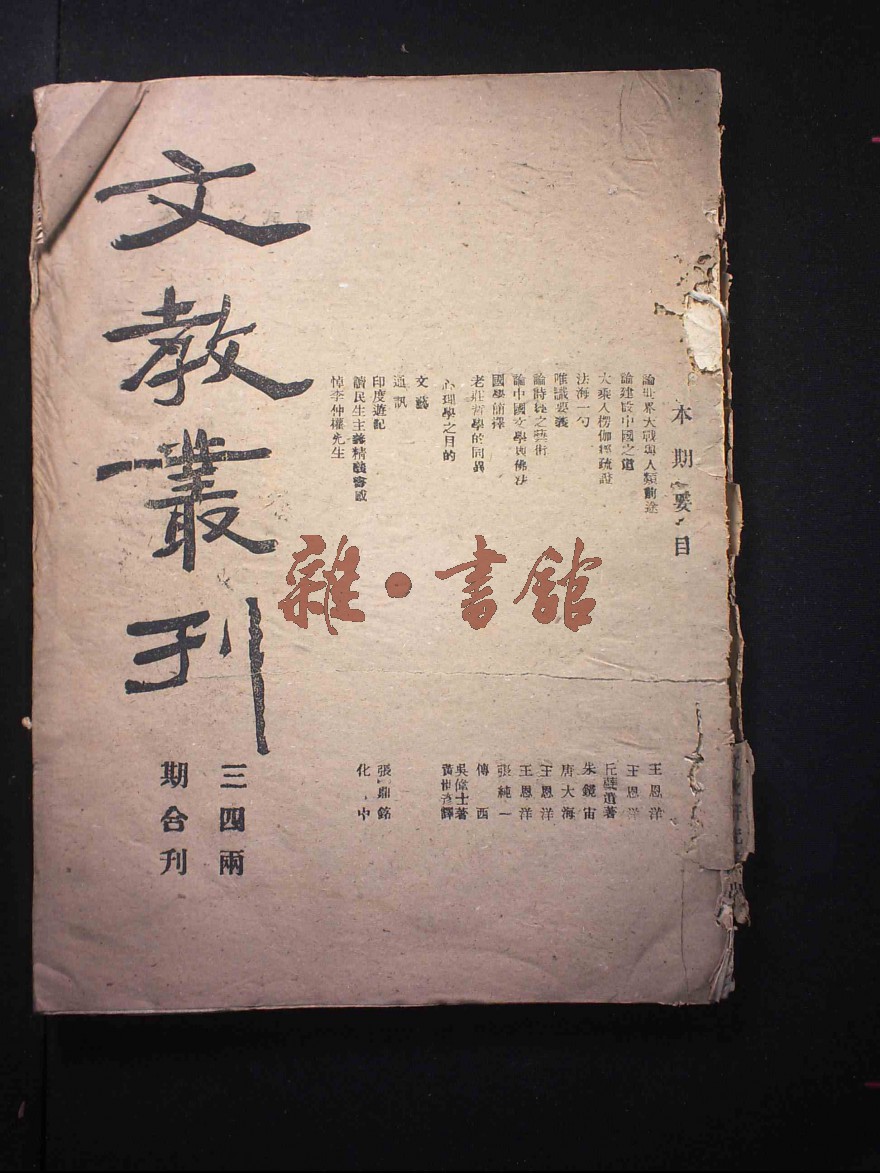 本期要目
論世界大戰與人類前途
王恩洋
論建設中國之道
王恩洋
大乘入楞伽經疏證
丘虛道著
法海一勺
朱鏡宙
唯識要義
唐大海
論詩經之藝術
王恩洋
論中國文學與佛法
王恩洋
國學簡擇
張純一
老莊哲學的同異
傅西
心理學之目的
吳偉士著
譯
文藝
通訊
印度遊記
張鼎銘
讀民生主義精義書感
化中
悼李仲權先生
文教叢刊
三四兩
期合刊
雜·書館